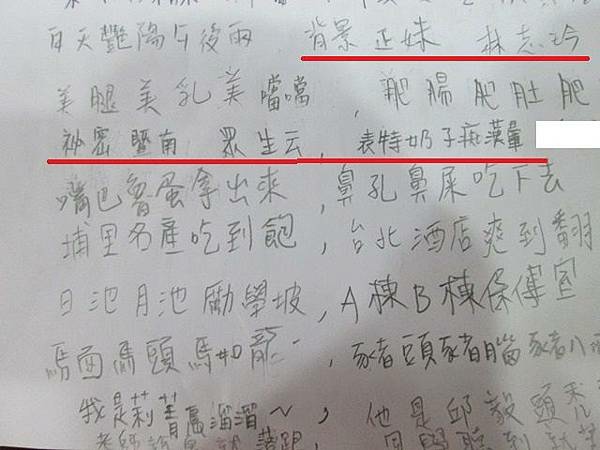 白天艷陽午後雨 背景正妹 林志玲
美腿美乳美噹噹，肥腸肥肚肥
神密暨南 眾生云，表特奶子痴漢暈
嘴巴魯蛋拿出來，鼻孔鼻屎吃下去
埔里名產吃到飽，台北酒店爽到翻
日池月池勵學坡，A棟B棟保傳室
馬面馬頭馬如龍，豬頭豬腦豬八
我是莉菁屬溜溜～，他是邱毅頭禿